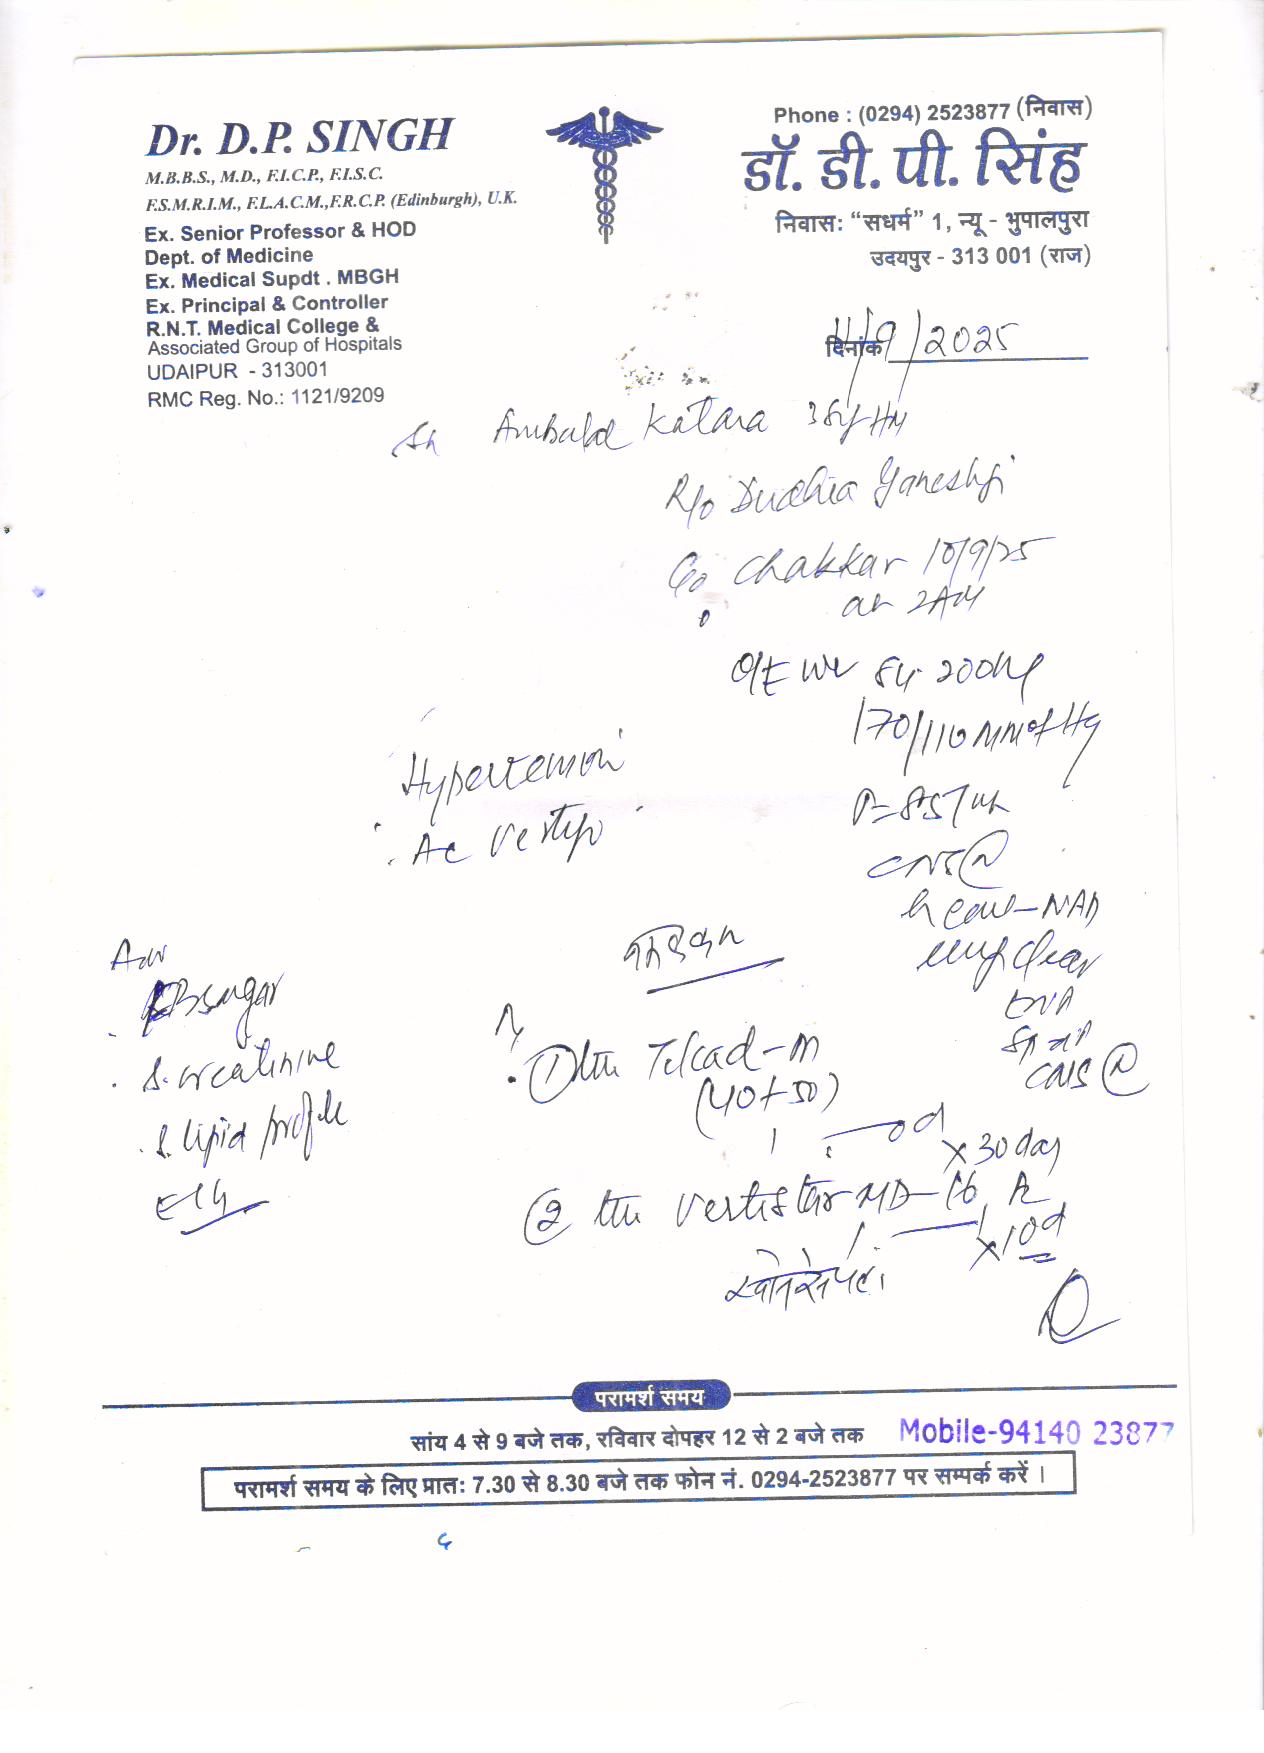 Dr. D.P. SINGH
M.B.B.S., M.D., F.I.C.P., F.I.S.C.
F.S.M.R.I.M., F.L.A.C.M.,F.R.C.P. (Edinburgh), U.K.
Ex. Senior Professor & HOD
Dept. of Medicine
Ex. Medical Supdt . MBGH
Ex. Principal & Controller
R.N.T. Medical College &
Associated Group of Hospitals
UDAIPUR - 313001
RMC Reg. No.: 1121/9209
Phone : (0294) 2523877 (निवास)
डॉ. डी. पी. सिंह
निवास: “सधर्म” 1, न्यू - भुपालपुरा
उदयपुर - 313 001 (राज)
दिनांक 11/9/2025
Katara
R/o Dudhia Ganeshji
C/o Chakkar 10/9/25
at 2AM
O/E
170/110 MM of Hg
Hypertension
Ac Vertigo
CNS (N)
NAD
clear
CNS (N)
Adv
B sugar
S. creatinine
S. lipid profile
ECG
① Telcad-M
(40+50)
1 od
x 30 day
② Vertistar MD-16
x 10d
परामर्श समय
सांय 4 से 9 बजे तक, रविवार दोपहर 12 से 2 बजे तक Mobile-94140 23877
परामर्श समय के लिए प्रात: 7.30 से 8.30 बजे तक फोन नं. 0294-2523877 पर सम्पर्क करें ।